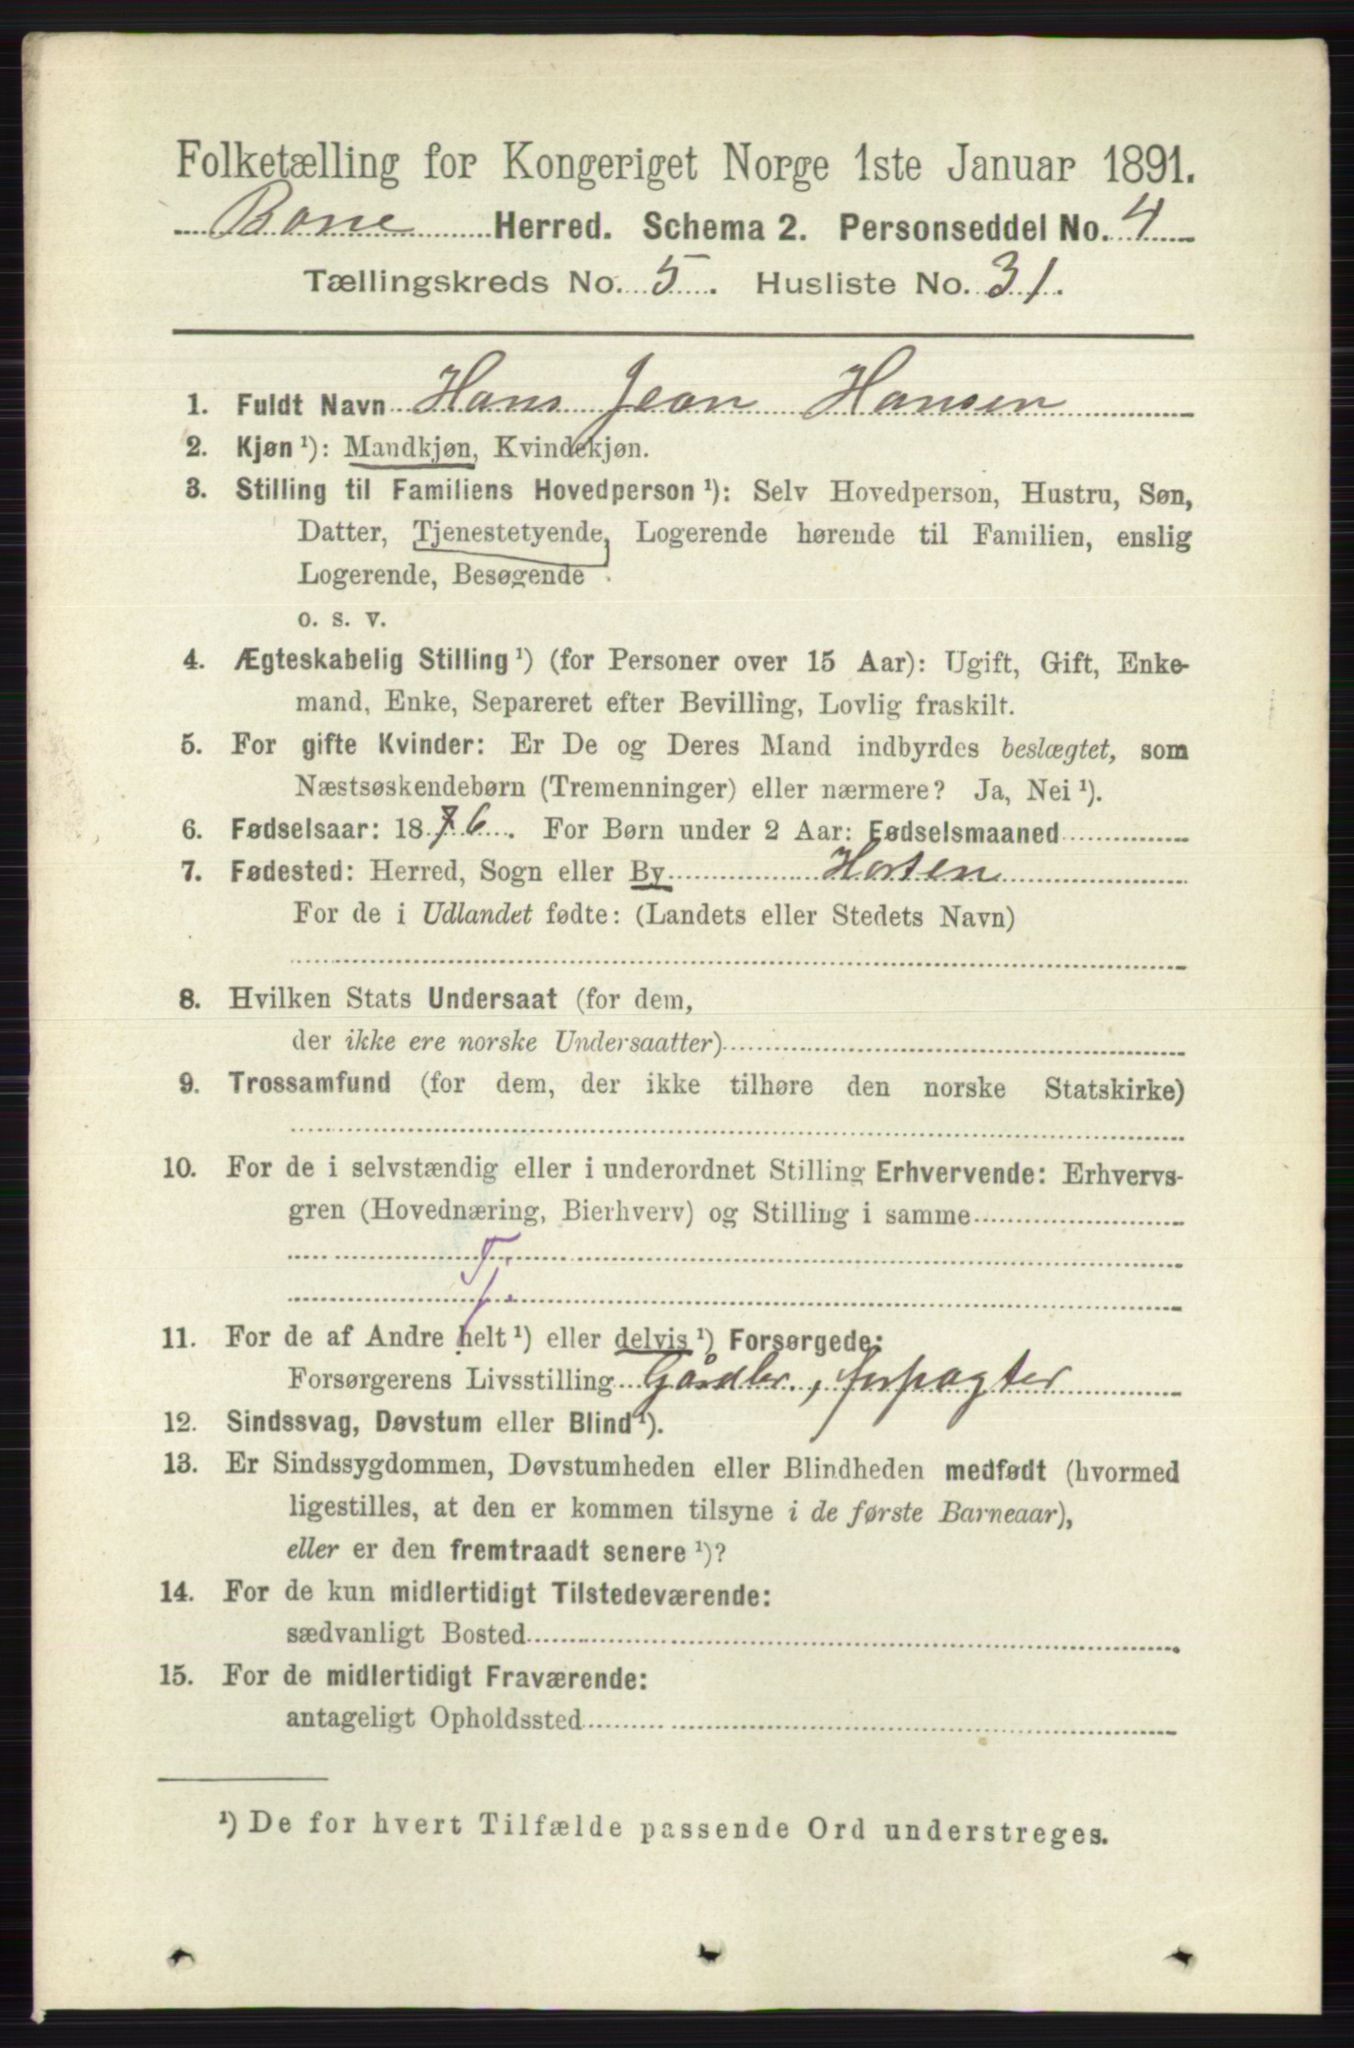 Folketælling for Kongeriget Norge 1ste Januar 1891.
Borre Herred. Schema 2. Personseddel No. 4
Tællingskreds No. 5. Husliste No. 31.
1. Fuldt Navn Hans Jean Hansen
2. Kjøn ¹): Mandkjøn, Kvindekjøn.
3. Stilling til Familiens Hovedperson ¹): Selv Hovedperson, Hustru, Søn,
Datter, Tjenestetyende, Logerende hørende til Familien, enslig
Logerende, Besøgende
o. s. v.
4. Ægteskabelig Stilling ¹) (for Personer over 15 Aar): Ugift, Gift, Enke-
mand, Enke, Separeret efter Bevilling, Lovlig fraskilt.
5. For gifte Kvinder: Er De og Deres Mand indbyrdes beslægtet, som
Næstsøskendebørn (Tremenninger) eller nærmere? Ja, Nei ¹).
6. Fødselsaar: 1876. For Børn under 2 Aar: Fødselsmaaned
7. Fødested: Herred, Sogn eller By Horten
For de i Udlandet fødte: (Landets eller Stedets Navn)
8. Hvilken Stats Undersaat (for dem,
der ikke ere norske Undersaatter)
9. Trossamfund (for dem, der ikke tilhøre den norske Statskirke)
10. For de i selvstændig eller i underordnet Stilling Erhvervende: Erhvervs-
gren (Hovednæring, Bierhverv) og Stilling i samme
11. For de af Andre helt ¹) eller delvis ¹) Forsørgede:
Forsørgerens Livsstilling Gårdbr., forpagter
12. Sindssvag, Døvstum eller Blind ¹).
13. Er Sindssygdommen, Døvstumheden eller Blindheden medfødt (hvormed
ligestilles, at den er kommen tilsyne i de første Barneaar),
eller er den fremtraadt senere ¹)?
14. For de kun midlertidigt Tilstedeværende:
sædvanligt Bosted
15. For de midlertidigt Fraværende:
antageligt Opholdssted
¹) De for hvert Tilfælde passende Ord understreges.